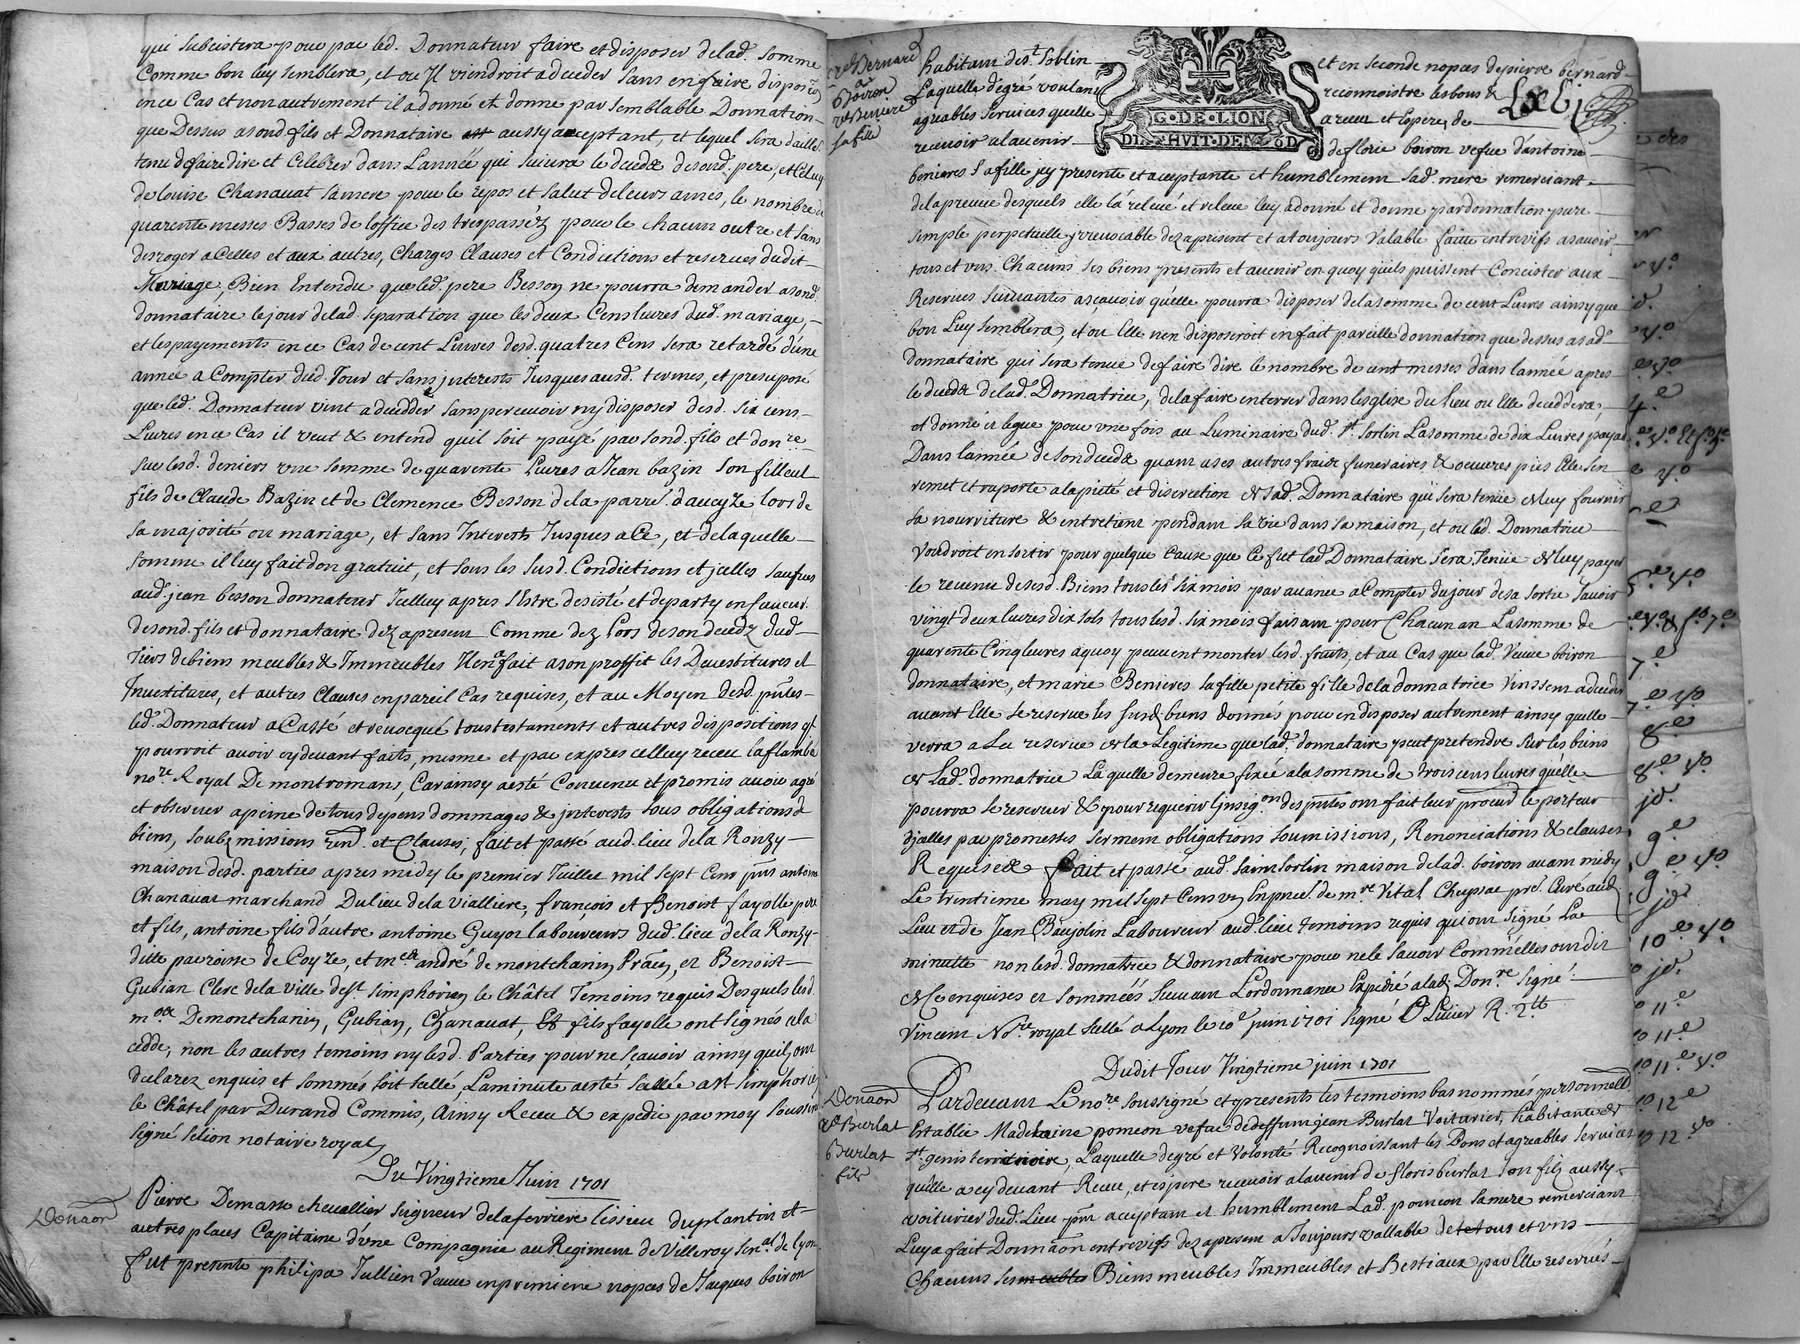 qui subcistera pour par led. Donnateur faire et disposer delad. somme
Comme bon luy semblera, et ou Il viendroit adceder sans en faire dispoon
ence Cas et non autrement il a donné et donne par semblable Donnation
que Dessus asond. fils et Donnataire aussy acceptant, et lequel sera
tenu defaire dire et Celebrer dans Lannée qui suivra le decedz desond. pere, et Celuy
de louise Chanavat sa mere pour le repos et salut deleurs ames, le nombre de
quarente messes Basses de loffice des trespassez pour le chacun outre et sans
desroger a Celles et aux autres, Charges Clauses et Condictions et reserves dudit
Mariage, Bien Entendu que led. pere Besson ne pourra demander asond.
donnataire le jour delad. separation que les deux Cens livres dud. mariage,
et les payements ence Cas de cent Livres desd. quatres Cens sera retardé d'une
année a Compter dud. Jour et sans jnterests Jusques ausd. termes, et presuposé
que led. Donnateur vint a dcedder sans percevoir ny disposer desd. six cens
Livres ence Cas il veut & entend quil soit payé par sond. fils et donre
sur lesd. deniers une somme de quarente Livres a Jean bazin son filleul
fils de Claude Bazin et de Clemence Besson dela parre. d'aveyze lors de
sa majorité ou mariage, et sans Interests Jusques a Ce, et delaquelle
somme il luy fait don gratuit, et sous les susd. Condictions et jcelles sauf
aud. jean besson donnateur Jcelluy apres s'Estre desisté et departy en faveur
desond. fils et donnataire dez apresent Comme dez Lors deson decedz dud.
Tiers de biens meubles & Immeubles Il en a fait a son proffit les Devestitures et
Investitures, et autres Clauses enpareil Cas requises, et au Moyen desd. pntes
led. Donnateur a Cassé et revocqué tous testaments et autres dispositions ql
pourroit avoir cy devant faits, mesme et par expres celluy receu laflambe
nore. Royal De montromans, Car ainsy aesté Convenu et promis avoir agré
et observer a peine de tous depens dommages & jnterests sous obligations d
biens, soubzmissions Renons. et Clauses, fait et passé aud. lieu de la Ronzy
maison desd. parties apres midy le premier Juillet mil sept Cens pnts antoine
Chanavat marchand Du lieu de la vialliere, françois et Benoist fayolle pere
et fils, antoine fils d'autre antoine Guyot laboureurs dud. lieu de la Ronzy
ditte parroisse de Coyze, et me. andré de montchanin Pratien, et Benoist
Gubian Clerc dela Ville de St. simphorien le Châtel Temoins requis Desquels lesd.
Demontchanin, Gubian, Chanavat, Et fils fayolle ont signés a la
cedde, non les autres temoins ny lesd. Parties pour ne scavoir ainsy quil ont
declarez enquis et sommés soit scellé, La minute aesté scellée a St. simphorien
le Châtel par Durand Commis, Ainsy Receu & expedié par moy soussigné
signé selion notaire royal
Du Vingtieme Juin 1701
Donaon
Pierre Demasso chevallier seigneur de la ferriere lissieu du plantin et
autres places Capitaine d'une Compagnie au Regiment de Villeroy senal. de lyon
fut presente philipa Jullien veuve en premiere nopces de Jacques boiron
de Bernard
Boiron
ve Beniere
sa fille
habitant de St. Sorlin
et en seconde nopces de pierre bernard
Laquelle degré voulant
reconnoistre les bons &
agreables services quelle
a receu et espere de
recevoir alavenir
G·DE·LION
DIX·HVIT·DEN·30D
de florie boiron vefue d'antoine
benieres sa fille jcy presente et aceptante et humblement sad. mere remerciant
de la preuve desquels elle l'a relevé et releve luy a donné et donne par donnation pure
simple perpetuelle jrrevocable dez apresent et a toujours valable faitte entre vifs a savoir
tous et uns Chacuns ses biens presents et avenir en quoy quels puissent Concister aux
Reserves suivantes ascavoir quelle pourra disposer de la somme de cent Livres ainsy que
bon Luy semblera, et ou Elle nen disposeroit en fait pareille donnation que dessus asad.
donnataire qui sera tenue defaire dire le nombre de cent messes dans lannée apres
le decedz delad. Donnatrice, dela faire enterrer dans lesglise du lieu ou Elle decedera,
et donne et legue pour une fois au Luminaire dud. St. sorlin La somme de dix Livres payab
Dans lannée de son decedz quant a ses autres fraiz funeraires & oeuvres pies Elle s'en
remet et raporte a la pieté et discretion de sad. Donnataire qui sera tenue de luy fournir
sa nourriture & entretient pendant sa vie dans sa maison, et ou lad. Donnatrice
voudroit en sortir pour quelque Cause que Ce fut lad. Donnataire sera Tenue de luy payer
le revenu desesd. Biens tous les six mois par avance a Compter du jour de sa sortie savoir
vingt deux livres dix sols tous lesd. six mois faisant pour Chacun an La somme de
quarente Cinq livres a quoy peuvent monter lesd. fruits, et au Cas que lad. Veuve boiron
donnataire, et marie Benieres sa fille petite fille de la donnatrice vinssent a deceder
avant Elle se reserve les susd. biens donnés pour en disposer autrement ainsy quelle
verra a La reserve de la Legitime que lad. donnataire peut pretendre sur les biens
de lad. donnatrice La quelle demeure fixée ala somme de trois cens livres qu'elle
pourra se reserver & pour requerir l'insigon. des pntes ont fait leur procur le porteur
djcelles par promesses serment obligations soumissions, Renonciations & clauses
Requise & fait et passé aud. saint sorlin maison delad. boiron avant midy
Le trentieme may mil sept Cens un En pnce. de mre Vital Cheyssac pre. Curé aud.
Lieu et de Jean Baujolin Laboureur aud. lieu temoins requis qui ont signé La
minutte non lesd. donnatrice & donnataire pour ne le savoir Comm'elles ont dit
de Ce enquises et sommées suivant L'ordonnance Expedié a lad. Donre. signé
Vincent Nore royal scellé a Lyon le 10e juin 1701 signé Olivier R. 2tt
Dudit Jour Vingtieme juin 1701
Donaon
de Burlat
Burlat
fils
Pardevant Le nore. soussigné et presents les tesmoins bas nommés personnell
Establie Madelaine pomeon vefue de deffunt jean Burlat Voiturier, habitante de
St. genis terrenoire, Laquelle degré et Volonté Recognoissant les Bons et agreables services
quelle a cy devant Receu, et espere recevoir alavenir de floris burlat son fils aussy
voiturier dud. Lieu pnt aceptant et humblement Lad. pomeon sa mere remerciant
Luy a fait Donnaon entre vifs dez apresent a Toujours vallable de tous et uns
Chacuns ses Biens meubles Immeubles et Bestiaux par Elle reservés